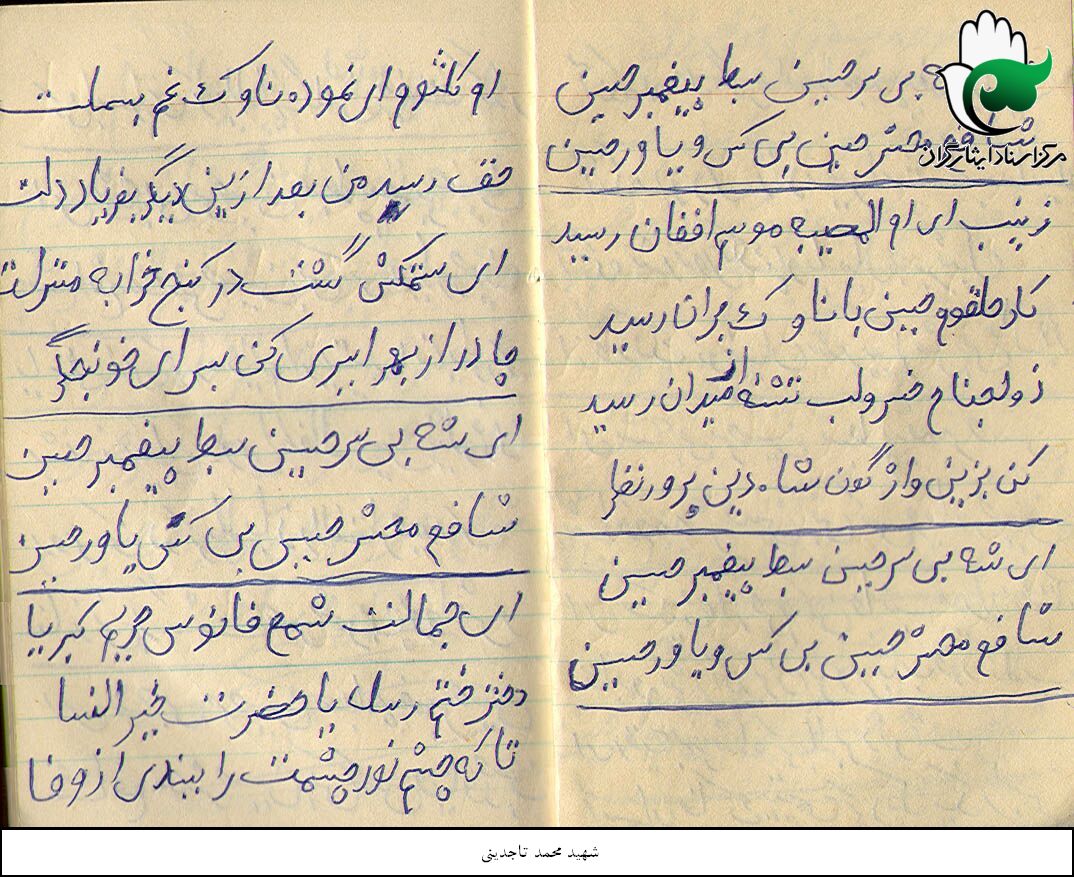 شه بی سر حسین سبط پیغمبر حسین
شافع محشر حسین بی کس و یاور حسین
زینب ای ام المصیبه موسم افغان رسید
کار حلقوم حسینی با ناوک بران رسید
ذولجناح خسرو لب تشنه از میدان رسید
کن بزین واژگون شاه دین پرور نظر
ای شه بی سر حسین سبط پیغمبر حسین
شافع محشر حسین بی کس و یاور حسین
ام کلثوم ای نموده ناوک غم بسملت
حق رسید من بعد ازین دیگر بفریاد دلت
ای ستمکش گشت در کنج خرابه منزلت
چادر از بهر اسیری کن بسر ای خونجگر
ای شه بی سر حسین سبط پیغمبر حسین
شافع محشر حسین بی کس یاور حسین
ای جمالت شمع فانوس حریم کبریا
دختر ختم رسل یا حضرت خیر النسا
تا که چشم نور چشمت را ببندی از وفا
مرکز اسناد ایثارگران
شهید محمد تاجدینی